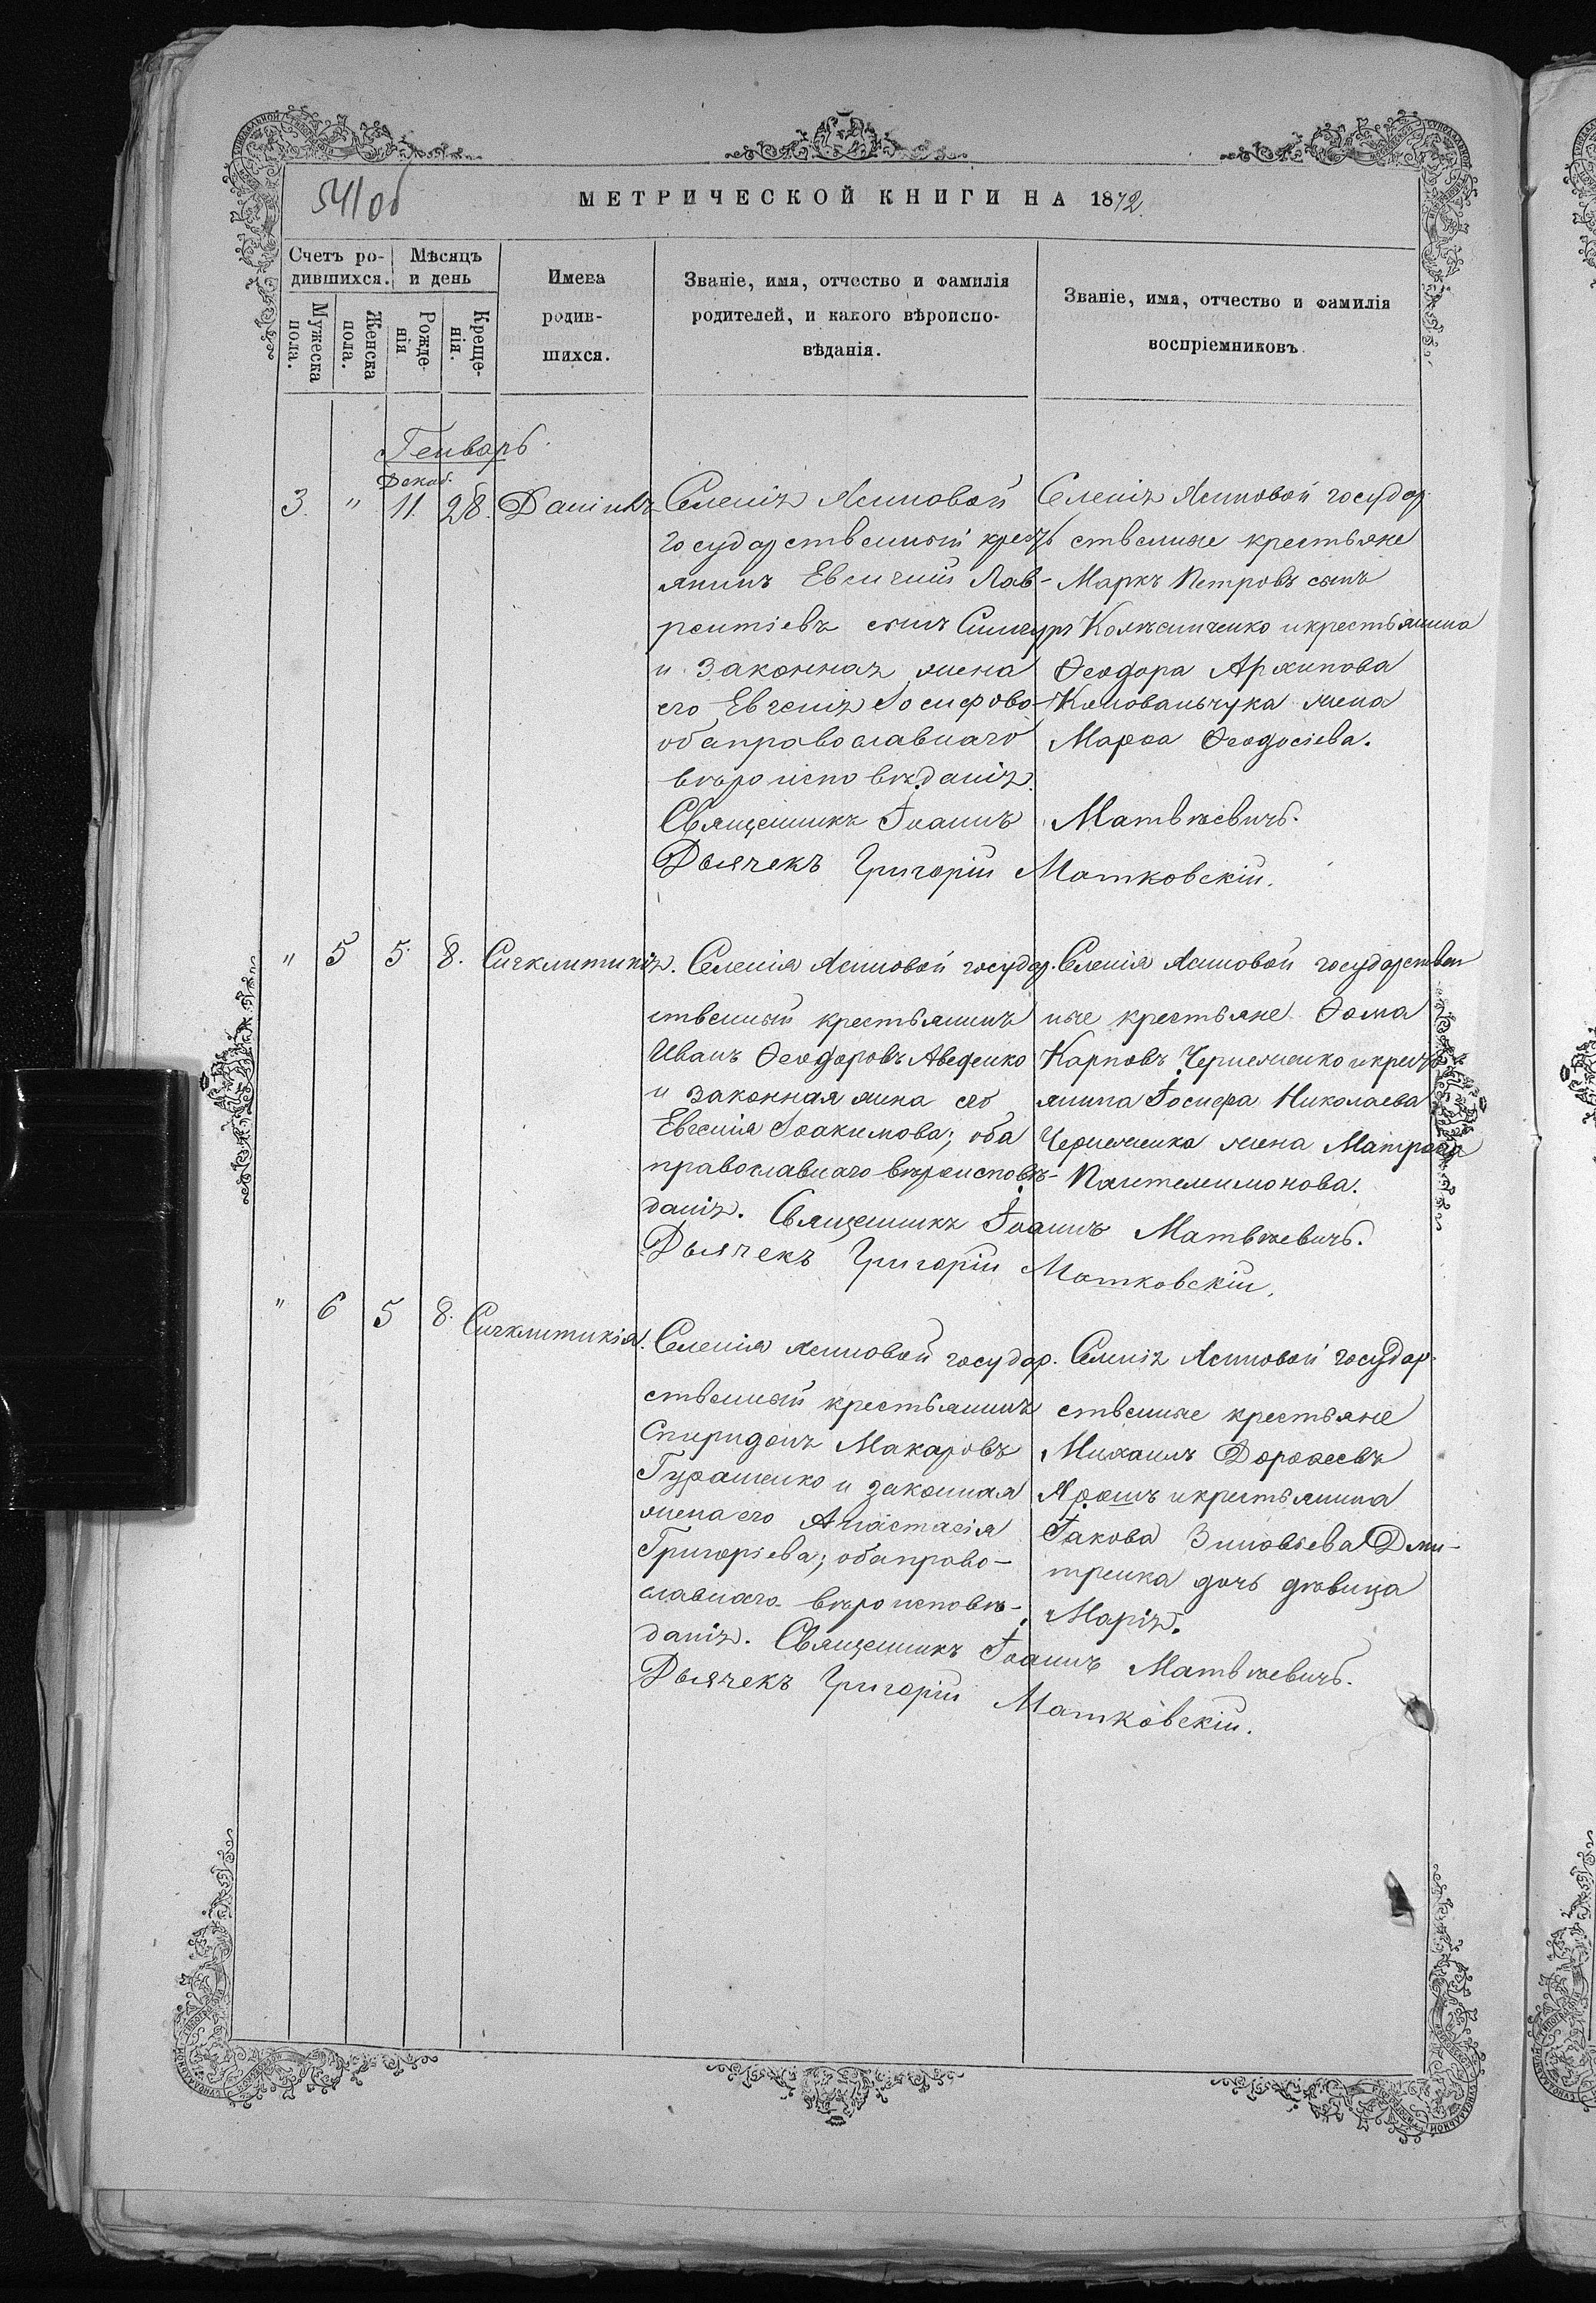 541 об
МЕТРИЧЕСКОЙ КНИГИ НА 1872.
Счетъ ро-
дившихся.
Мѣсяцъ
и день
Мужеска
пола.
Женска
пола.
Рожде-
нія
Креще-
нія.
Имена
родив-
шихся.
Званіе, имя, отчество и фамилія
родителей, и какого вѣроиспо-
вѣданія.
Званіе, имя, отчество и фамилія
воспріемниковъ
Генварь.
Декаб.
3. " 11. 28. Даніилъ
Селенія Ясиновой
государственный крест
янинъ Евгеній Лав-
рентіевъ сынъ
и законная жена
его Евгенія Іосифова
оба православнаго
вѣроисповѣданія.
Священникъ Іоаннъ Матвѣевичъ.
Дьячекъ Григорій Матковскій.
Селенія Ясиновой государ
ственные крестьяне
Маркъ Петровъ сынъ
и крестьянина
Ѳеодора Архипова
Коновальчука жена
Марѳа Ѳеодосіева.
" 5 5. 8. Сигклитикія.
Селенія Ясиновой государ.
ственный крестьянинъ
Иванъ Ѳеодоровъ Авдеенко
и законная жена его
Евгенія Іоакимова; оба
православнаго вѣроисповѣ-
данія. Священникъ Іоаннъ Матвѣевичъ.
Дьячекъ Григорій Матковскій.
Селенія Ясиновой государствен
ные крестьяне Ѳома
Карповъ и крест
янина Іосифа Николаева
жена Матрона
Пантелеимонова.
" 6 5 8. Сигклитикія.
Селенія Ясиновой государ.
ственный крестьянинъ
Спиридонъ Макаровъ
и законная
жена его Анастасія
Григоріева; оба право-
славнаго вѣроисповѣ-
данія. Священникъ Іоаннъ Матвѣевичъ.
Дьячекъ Григорій Матковскій.
Селенія Ясиновой государ-
ственные крестьяне
Михаилъ Дороѳеевъ
Ярошъ и крестьянина
Іакова Зиновіева Дми-
тренка дочь дѣвица
Марія.